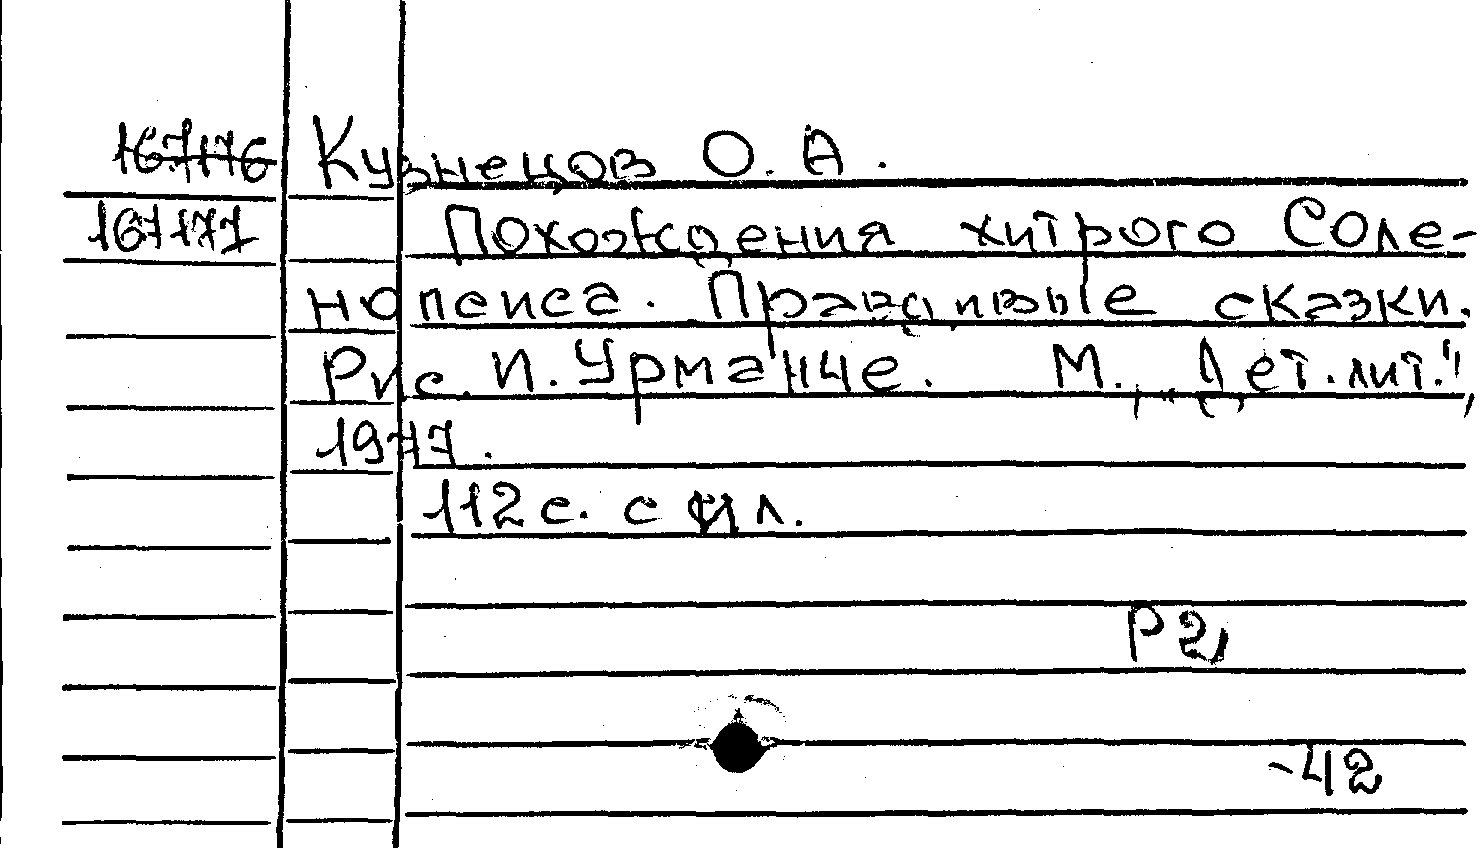 167176 Кузнецов О. А.
167177 Похождения хитрого Соле-
нопсиса. Правдивые сказки.
Рис. И. Урманче. М., „Дет. лит.",
1977.
112 с. с ил.
Р2
-42